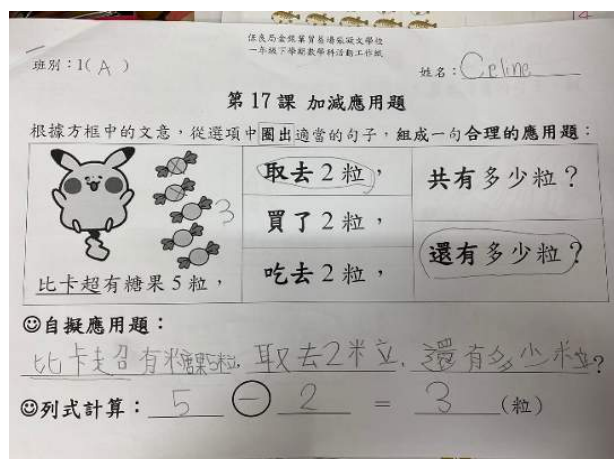 保良局金銀業貿易場張凝文學校
一年級下學期數學科活動工作紙
班別：1( A )
姓名：Celine
第 17 課 加減應用題
根據方框中的文意，從選項中圈出適當的句子，組成一句合理的應用題：
3
比卡超有糖果 5 粒，
取去 2 粒，
買了 2 粒，
吃去 2 粒，
共有多少粒？
還有多少粒？
☺自擬應用題：
比卡超有糖果5粒, 取去2粒, 還有多少粒?
☺列式計算： 5 − 2 = 3 (粒)